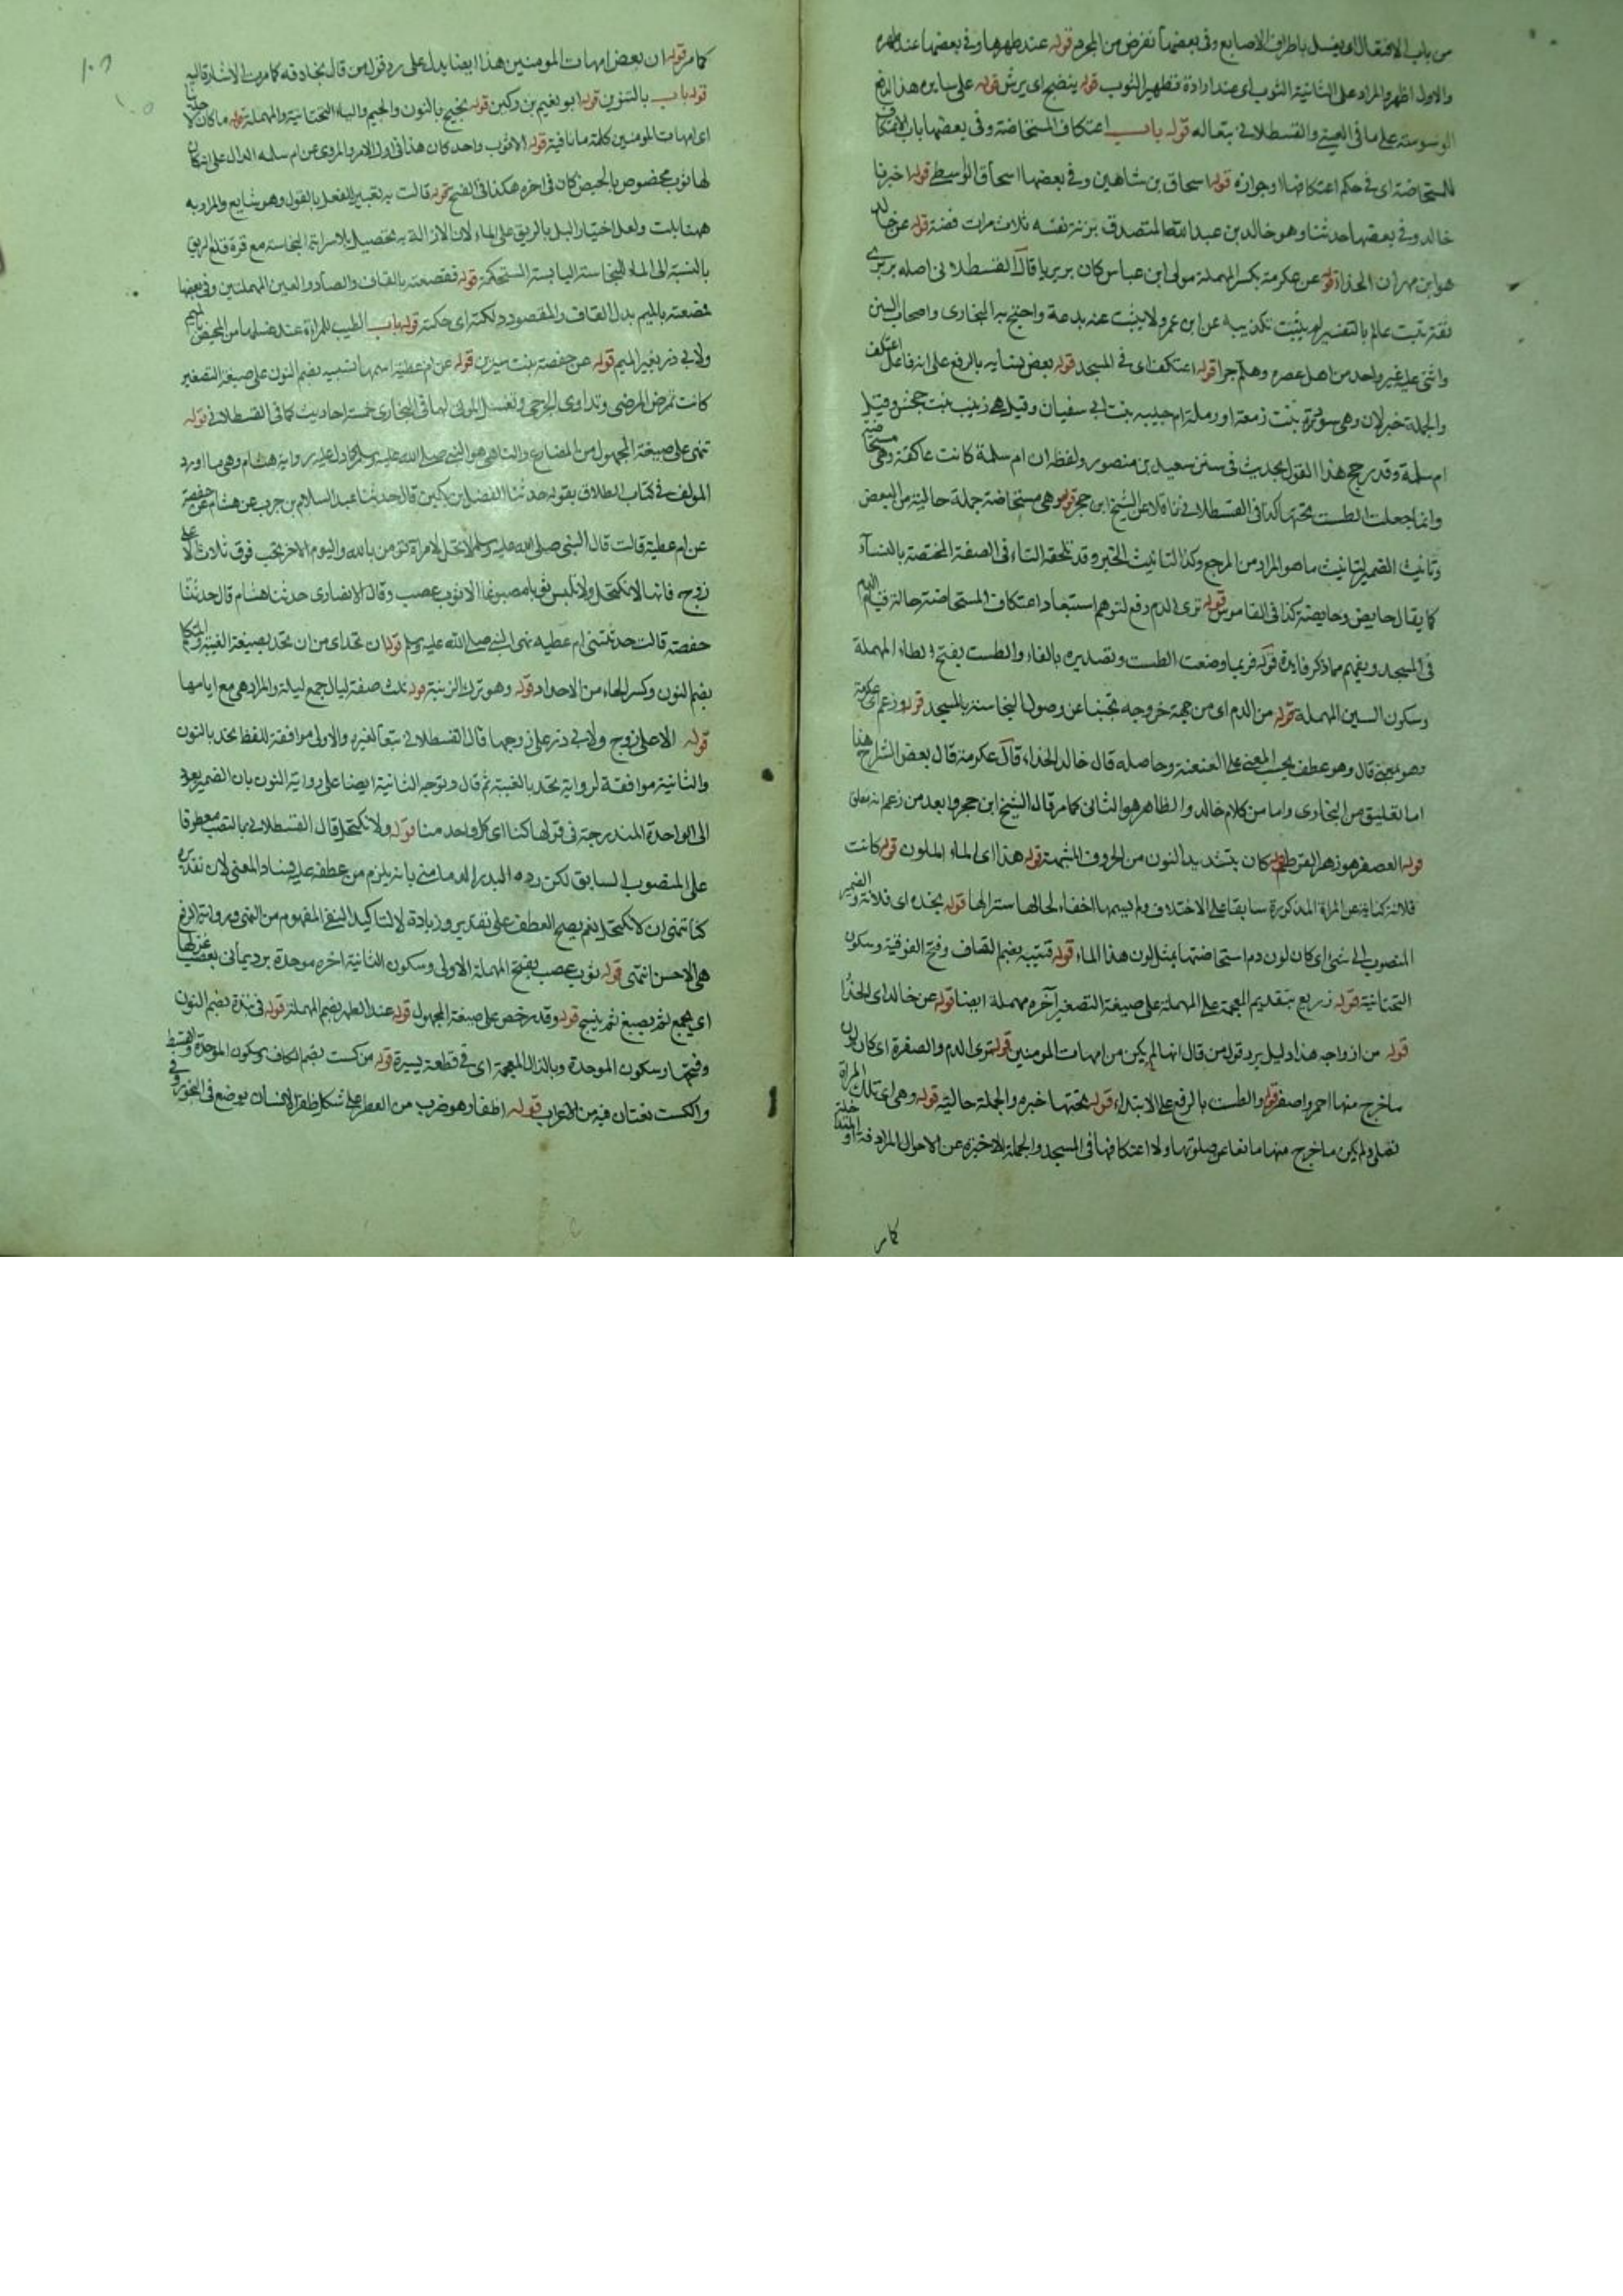 من باب الافتعال اى يغسل باطراف الاصابع وفى بعضها تقرض من المجرد قوله عند طهرها وفى بعضها عند طهره
والاول اظهر والمراد على الثانية الثوب اى عند ارادة تطهير الثوب قوله ينضح اى يرش قوله على سايره هذا لدفع
الوسوسة على ما فى العينى والقسطلانى تبعا له قوله باب اعتكاف المستحاضة وفى بعضها باب الاعتكاف
للمستحاضة اى فى حكم اعتكافها وجوازه قوله اسحاق بن شاهين وفى بعضها اسحاق الواسطى قوله اخبرنا
خالد وفى بعضها حدثنا وهو خالد بن عبد الله المتصدق بزنة نفسه ثلاث مرات فضة قوله عن خالد
هو ابن مهران الحذاء قوله عن عكرمة بكسر المهملة مولى ابن عباس كان بربريا قال القسطلانى اصله بربرى
ثقة ثبت عالم بالتفسير لم يثبت تكذيبه عن ابن عمر ولا يثبت عنه بدعة واحتج به البخارى واصحاب السنن
واثنى عليه غير واحد من اهل عصره وهلم جرا قوله اعتكف اى فى المسجد قوله بعض نسايه بالرفع على انه فاعل اعتكف
والجملة خبر لان وهى سودة بنت زمعة او رملة ام حبيبه بنت ابى سفيان وقيل هى زينب بنت جحش وقيل
ام سلمة وقد رجح هذا القول بحديث فى سنن سعيد بن منصور ولفظه ان ام سلمة كانت عاكفة وهى مستحاضة
وانما جعلت الطست تحتها كذا فى القسطلانى ناقلا عن الشيخ ابن حجر قوله وهى مستحاضة جملة حالية من البعض
وتانيث الضمير لتانيث ما هو المراد من المرجع وكذا لتانيث الخبر وقد تلحقه التاء فى الصفة المختصة بالنسآء
كما يقال حايض وحايضة كذا فى القاموس قوله ترى الدم دفع لتوهم استبعاد اعتكاف المستحاضة حالة قيام الدم
فى المسجد ويفهم مما ذكر فايدة قوله فربما وضعت الطست وتصديره بالفاء والطست بفتح الطاء المهملة
وسكون السين المهملة قوله من الدم اى من جهة خروجه تجنبا عن وصول النجاسة بالمسجد قوله وزعم اى عكرمة
وهو بمعنى قال وهو عطف بحسب المعنى على العنعنة وحاصله قال خالد الحذاء قال عكرمة قال بعض الشراح هنا
اما تعليق من البخارى واما من كلام خالد والظاهر هو الثانى كما مر قال الشيخ ابن حجر وابعد من زعم انه معلق
قوله العصفر هو زهر القرطم قوله كان بتشديد النون من الحروف المشبهة قوله هذا اى الماء الملون قوله كانت
فلانة كناية عن المراة المذكورة سابقا على الاختلاف ولم يبينها اخفاء لحالها سترا لها قوله تجده اى فلانة والضمير
المنصوب الى شئ اى كان لون دم استحاضتها بمثل لون هذا الماء قوله قتيبه بضم القاف وفتح الفوقية وسكون
التحتانية قوله زريع بتقديم المعجمة على المهملة على صيغة التصغير آخره مهملة ايضا قوله عن خالد اى الحذا
قوله من ازواجه هذا دليل يرد قول من قال انها لم يكن من امهات المومنين قوله ترى الدم والصفرة اى كان لون
ما خرج منها احمر واصفر قوله والطست بالرفع على الابتداء قوله تحتها خبره والجملة حالية قوله وهى اى تلك المراة
تصلى ولم يكن ما خرج منها مانعا عن صلوتها ولا اعتكافها فى المسجد والجملة الاخيرة عن الاحوال المرادفة او المتداخلة
كما مر
كما مر قوله ان بعض امهات المومنين هذا ايضا يدل على رد قول من قال بخلافه كما مرت الاشارة اليه
قوله باب بالتنوين قوله ابو نعيم بن دكين قوله نجيح بالنون والجيم والياء التحتانية والمهملة قوله ما كان لاحدينا
اى امهات المومنين كلمة ما نافية قوله الا ثوب واحد كان هذا فى اول الامر والمروى عن ام سلمه الدال على انه كان
لها ثوب مخصوص بالحيض كان فى اخره هكذا فى الفتح قوله قالت به تعبير الفعل بالقول وهو شايع والمراد به
ههنا بلت ولعل اختيار البل بالريق على الماء لان الازالة به تحصيل بلا سراية النجاسة مع قرة قلع الريق
بالنسبة الى الماء للنجاسة اليابسة المستحكمة قوله فقصعته بالقاف والصاد والعين المهملتين وفى بعضها
فمصعته بالميم بدل القاف والمقصود دلكته اى حكته قوله باب الطيب للمراة عند غسلها من المحيض بالميم
ولابى ذر بغير الميم قوله عن حفصة بنت سيرين قوله عن ام عطية اسمها نسيبه بضم النون على صيغة التصغير
كانت تمرض المرضى وتداوى الجرحى وتغسل الموتى لها فى البخارى خمسة احاديث كما فى القسطلانى قوله
ننهى على صيغة المجهول من المضارع والناهى هو النبى صلى الله عليه وسلم كما دل عليه رواية هشام وهى ما اورد
المولف فى كتاب الطلاق بقوله حدثنا الفضل بن دكين قال حدثنا عبد السلام بن حرب عن هشام عن حفصة
عن ام عطية قالت قال النبى صلى الله عليه وسلم لا تحل لامراة تومن بالله واليوم الاخر تحد فوق ثلاث الا على
زوج فانها لا تكتحل ولا تلبس ثوبا مصبوغا الا ثوب عصب وقال الانصارى حدثنا هشام قال حدثتنا
حفصة قالت حدثتنى ام عطيه نهى النبى صلى الله عليه وسلم قوله ان تحد اى من ان تحد بصيغة الغيبة والمتكلم
بضم النون وكسر الحاء من الاحداد قوله وهو ترك الزينة قوله ثلث صفة ليال جمع ليلة والمراد هى مع ايامها
قوله الا على زوج ولابى ذر على زوجها قال القسطلانى تبعا لغيره والاولى موافقة للفظ نحد بالنون
والثانية موافقة لرواية تحد بالغيبة ثم قال وتوجه الثانية ايضا على رواية النون بان الضمير يعود
الى الواحدة المندرجة فى قولها كنا اى كل واحد منا قوله ولا نكتحل قال القسطلانى بالنصب معطوفا
على المنصوب السابق لكن رده البدر الدمامينى بانه يلزم من عطفه عليه فساد المعنى لان تقديره
كنا ننهى ان لا نكتحل نعم يصح العطف على تقدير زيادة لا لتاكيد النفى المفهوم من النهى ورواية الرفع
هى الاحسن انتهى قوله ثوب عصب بفتح المهملة الاولى وسكون الثانية اخره موحدة برد يمانى يعصب غزلها
اى يجمع ثم يصبغ ثم ينسج قوله وقد رخص على صيغة المجهول قوله عند الطهر بضم المهملة قوله فى نبذة بضم النون
وفتحها وسكون الموحدة وبالذال المعجمة اى فى قطعة يسيرة قوله من كست بضم الكاف وسكون الموحدة والقسط
والكست لغتان فيه من الاعراب قوله اظفار هو ضرب من العطر على شكل ظفر الانسان يوضع فى البخور وفى